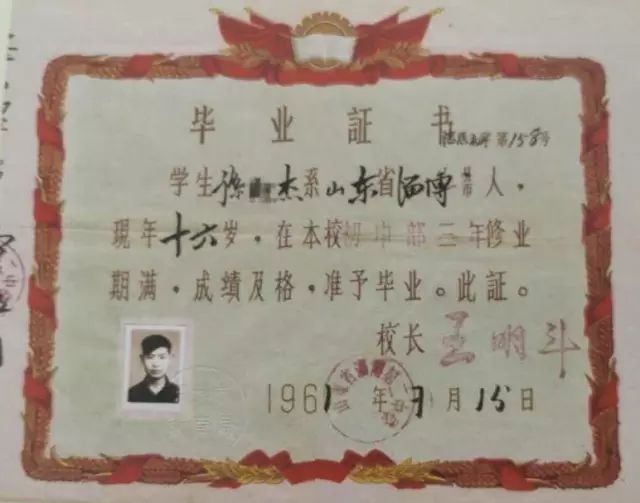 毕业証书
第158号
学生徐杰系山东省淄博市人，
現年十六岁，在本校初中部三年修业
期满，成绩及格，准予毕业。此証。
校长王明斗
1961年月15日